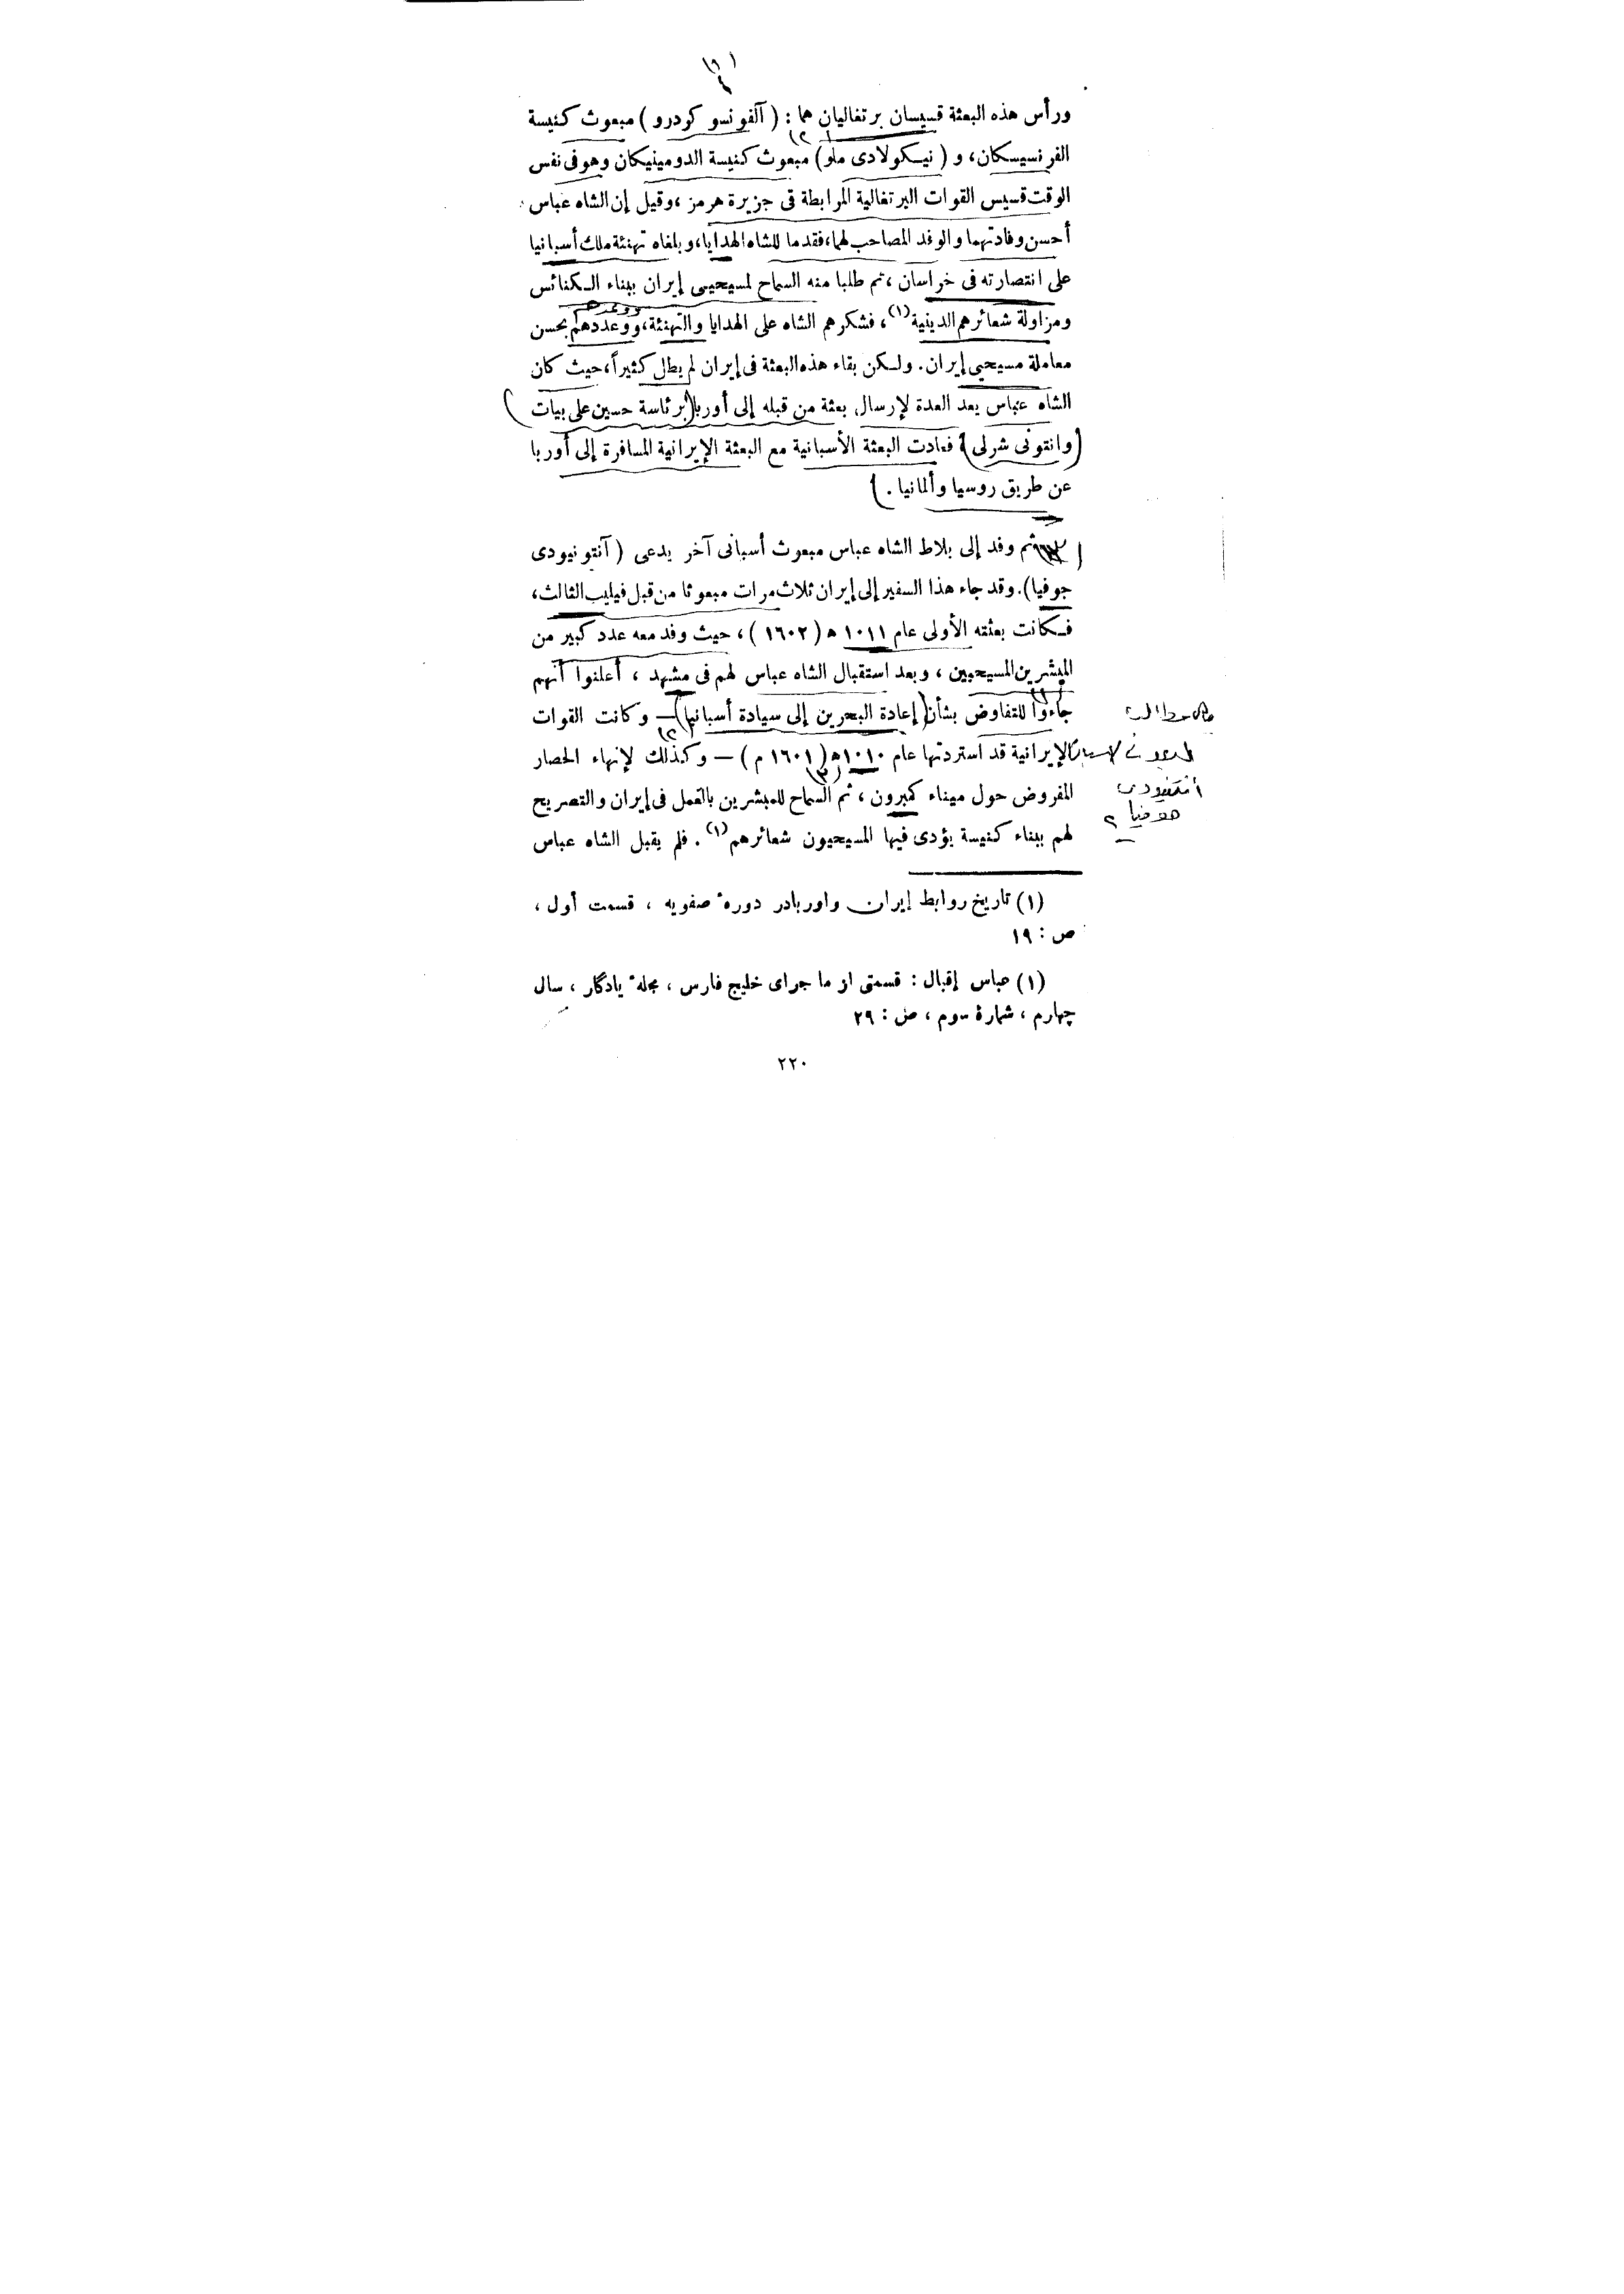 ورأس هذه البعثة قسيسان برتغاليان هما : ( آلفونسو كودرو ) مبعوث كنيسة
الفرنسيسكان، و ( نيكولادى ملو) مبعوث كنيسة الدومينيكان وهو فى نفس
الوقت قسيس القوات البرتغالية المرابطة فى جزيرة هرمز ، وقيل إن الشاه عباس
أحسن وفادتهما والوفد المصاحب لهما، فقدما للشاه الهدايا، وبلغاه تهنئة ملك أسبانيا
على انتصارته فى خراسان ، ثم طلبا منه السماح لمسيحيى إيران ببناء الكنائس
ومزاولة شعائرهم الدينية (١) ، فشكرهم الشاه على الهدايا والتهنئة، ووعددهم بحسن
معاملة مسيحيى إيران. ولكن بقاء هذه البعثة فى إيران لم يطل كثيراً، حيث كان
الشاه عباس يعد العدة لإرسال بعثة من قبله إلى أوربا برئاسة حسين على بيات
وانتونى شرلى فعادت البعثة الأسبانية مع البعثة الإيرانية المسافرة إلى أوربا
عن طريق روسيا وألمانيا .
ثم وفد إلى بلاط الشاه عباس مبعوث أسبانى آخر يدعى ( آنتونيودى
جوفيا). وقد جاء هذا السفير إلى إيران ثلاث مرات مبعوثا من قبل فيليب الثالث،
فكانت بعثته الأولى عام ١٠١١ ه ( ١٦٠٢ ) ، حيث وفد معه عدد كبير من
المبشرين المسيحيين ، وبعد استقبال الشاه عباس لهم فى مشهد ، أعلنوا أنهم
جاءوا للتفاوض بشأن إعادة البحرين إلى سيادة أسبانيا — وكانت القوات
الإيرانية قد استردتها عام ١٠١٠ه ( ١٦٠١ م ) — وكذلك لإنهاء الحصار
المفروض حول ميناء كمبرون ، ثم السماح للمبشرين بالعمل فى إيران والتصريح
لهم ببناء كنيسة يؤدى فيها المسيحيون شعائرهم (١) . فلم يقبل الشاه عباس
(١) تاريخ روابط إيران واوربادر دورهٔ صفويه ، قسمت أول ،
ص : ١٩
(١) عباس إقبال : قسمتى از ما جراى خليج فارس ، مجلهٔ يادگار ، سال
چهارم ، شمارهٔ سوم ، ص : ٢٩
٢٢٠